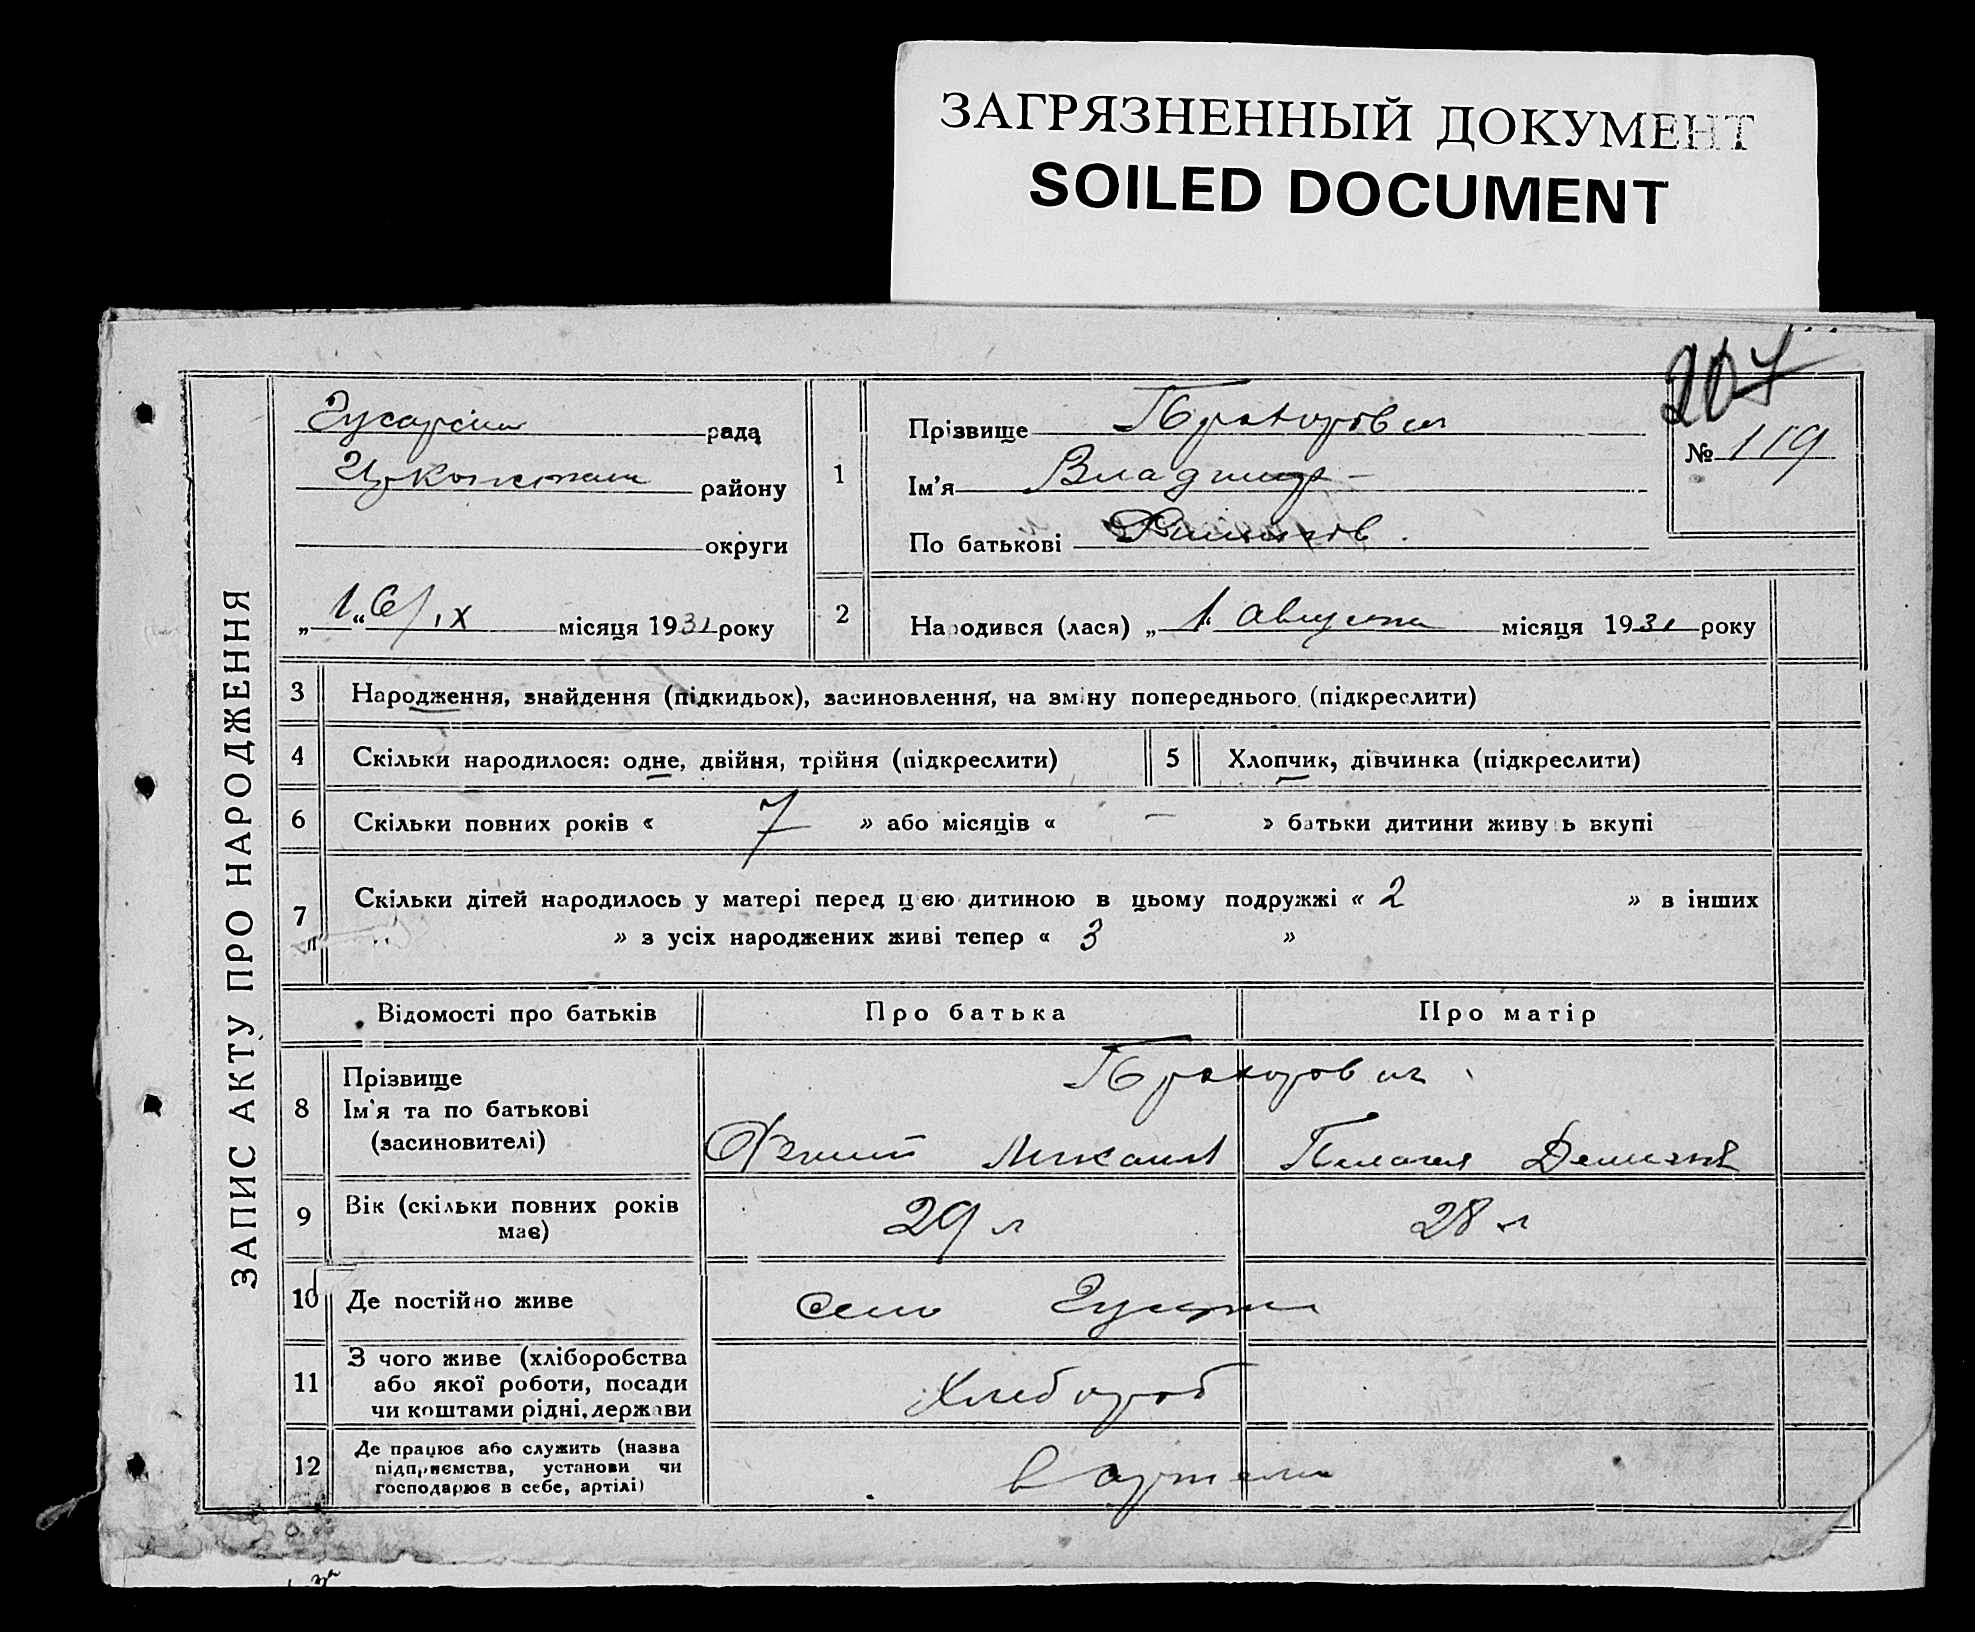 ЗАГРЯЗНЕННЫЙ ДОКУМЕНТ
SOILED DOCUMENT
207
ЗАПИС АКТУ ПРО НАРОДЖЕННЯ
рада
району
округи
„1“ 6/IX місяця 1931 року
1
Прізвище
Ім'я Владимир
По батькові
№ 119
2
Народився (лася) „1“ августа місяця 1931 року
3 Народження, знайдення (підкидьок), засиновлення, на зміну попереднього (підкреслити)
4 Скільки народилося: одне, двійня, трійня (підкреслити)
5 Хлопчик, дівчинка (підкреслити)
6 Скільки повних років « 7 » або місяців « — » батьки дитини живуть вкупі
7 Скільки дітей народилось у матері перед цією дитиною в цьому подружжі « 2 » в інших
» з усіх народжених живі тепер « 3 »
Відомості про батьків Про батька Про матір
8 Прізвище
Ім'я та по батькові
(засиновителі)
Пелагея
9 Вік (скільки повних років
має)
29 л 28 л
10 Де постійно живе
село
11 З чого живе (хліборобства
або якої роботи, посади
чи коштами рідні, держави
Хлебороб
12 Де працює або служить (назва
підприємства, установи чи
господарює в себе, артілі)
в артели